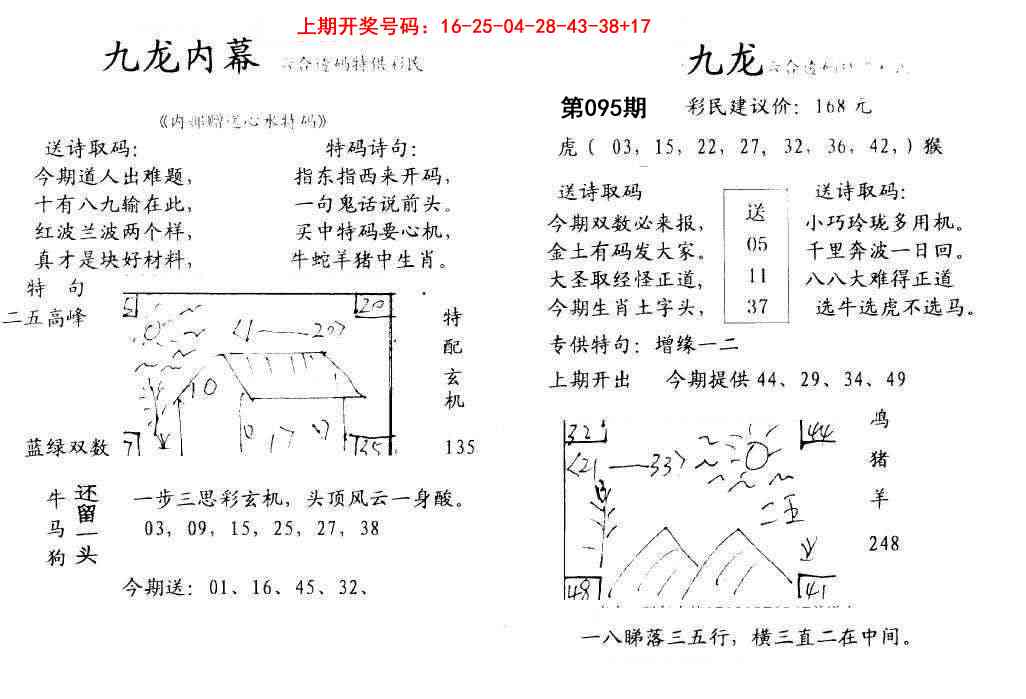 上期开奖号码：16-25-04-28-43-38+17
九龙内幕
六合透码特供彩民
《内部赠送心水特码》
送诗取码：
今期道人出难题，
十有八九输在此，
红波兰波两个样，
真才是块好材料，
特码诗句：
指东指西来开码，
一句鬼话说前头。
买中特码要心机，
牛蛇羊猪中生肖。
特 句
二五高峰
蓝绿双数
5
20
<1——20>
10
7
35
特
配
玄
机
135
牛
马
狗
还
留
一
头
一步三思彩玄机，头顶风云一身酸。
03，09，15，25，27，38
今期送：01、16、45、32、
九龙
六合透码
第095期
彩民建议价：168元
虎（ 03，15，22，27，32，36，42，）猴
送诗取码
今期双数必来报，
金土有码发大家。
大圣取经怪正道，
今期生肖土字头，
送
05
11
37
送诗取码：
小巧玲珑多用机。
千里奔波一日回。
八八大难得正道
选牛选虎不选马。
专供特句：增缘一二
上期开出 今期提供44、29、34、49
32
44
<21——33>
二五
48
41
鸡
猪
羊
248
一八睇落三五行，横三直二在中间。